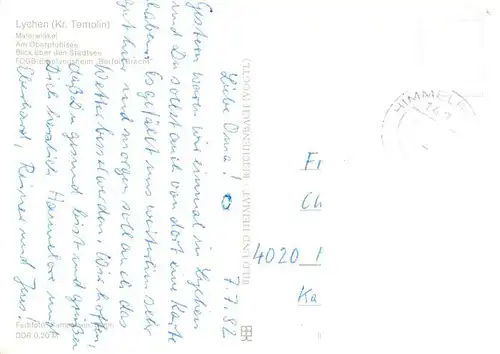 Lychen (Kr. Templin)
Malerwinkel
Am Oberpfuhlsee
Blick über den Stadtsee
FDGB-Erholungsheim "Bertolt Brecht"
7.7.82
Liebe Oma!
Gestern waren wir einmal in Lychen
und Du sollst auch von dort eine Karte
haben. Es gefällt uns weiterhin sehr
gut hier und morgen soll auch das
Wetter besser werden. Wir hoffen,
daß Du gesund bist und grüßen
Dich herzlich Hannelore und
Eberhard, Reiner und Jens!
HIMMELP
Fr
Ch
4020
Ka
DDR 0,20 M